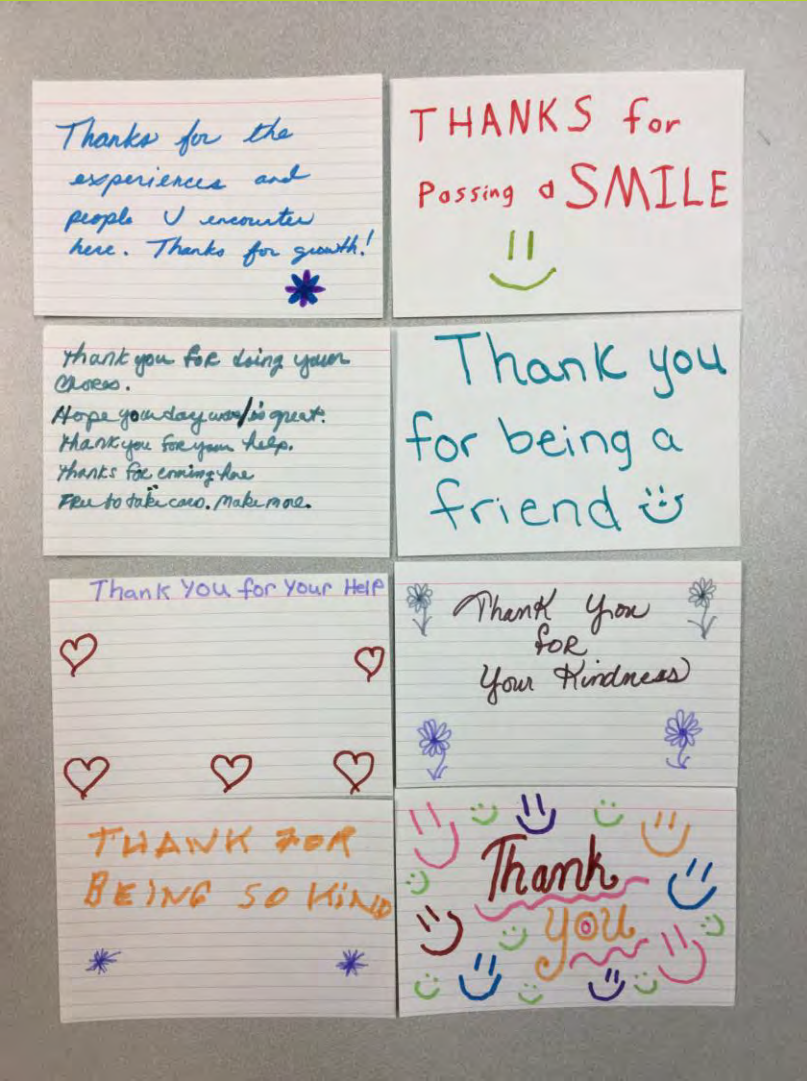 Thanks for the
experiences and
people U encounter
here. Thanks for growth!
THANKS for
Passing a SMILE
Thank you for doing your
Chores.
Hope your day was/is great.
Thank you for your help.
Thanks for coming here
Free to take card. Make more.
Thank you
for being a
friend
Thank You for Your Help
Thank You
foR
Your Kindness
THANK FOR
BEING SO KIND
Thank
you